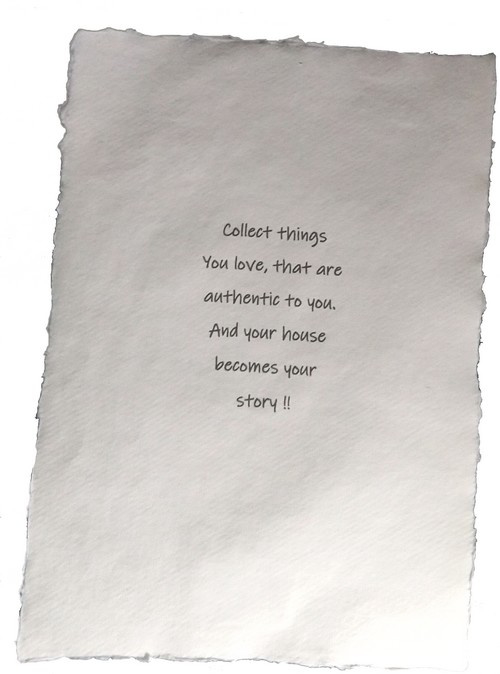 Collect things
You love, that are
authentic to you.
And your house
becomes your
story !!